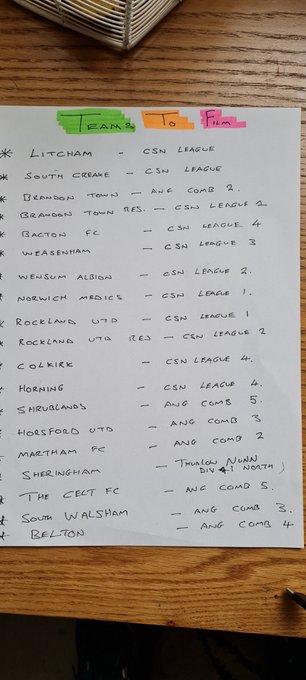 TEAMS TO FILM
* LITCHAM - CSN LEAGUE
* SOUTH CREAKE - CSN LEAGUE
* BRANDON TOWN - ANG COMB 2.
* BRANDON TOWN RES. - CSN LEAGUE 2
* BACTON FC - CSN LEAGUE 4
* WEASENHAM - CSN LEAGUE 3
* WENSUM ALBION - CSN LEAGUE 2.
* NORWICH MEDICS - CSN LEAGUE 1.
* ROCKLAND UTD - CSN LEAGUE 1
* ROCKLAND UTD RES - CSN LEAGUE 2
* COLKIRK - CSN LEAGUE 4.
* HORNING - CSN LEAGUE 4.
* SHRUBLANDS - ANG COMB 5.
* HORSFORD UTD - ANG COMB 3
* MARTHAM FC - ANG COMB 2
* SHERINGHAM - THURLOW NUNN
DIV 1 NORTH
* THE CELT FC - ANG COMB 5.
* SOUTH WALSHAM - ANG COMB 3.
* BELTON - ANG COMB 4